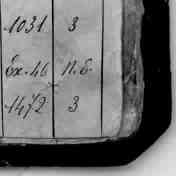 1031 3
Ex. 46 N. E.
1472 3